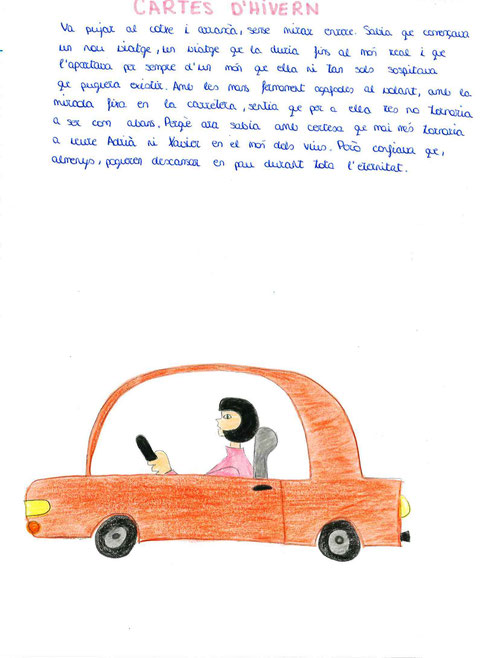 CARTES D'HIVERN
Va pujar al cotxe i arrancà, sense mirar enrere. Sabia que començava
un nou viatge, un viatge que la duria fins al món real i que
l'apartava per sempre d'un món que ella ni tan sols sospitava
que puguera existir. Amb les mans fermament agafades al volant, amb la
mirada fixa en la carretera, sentia que per a ella res no tornaria
a ser com abans. Perquè ara sabia amb certesa que mai més tornaria
a veure Adrià ni Xavier en el món dels vius. Però confiava que,
almenys, pogueren descansar en pau durant tota l'eternitat.